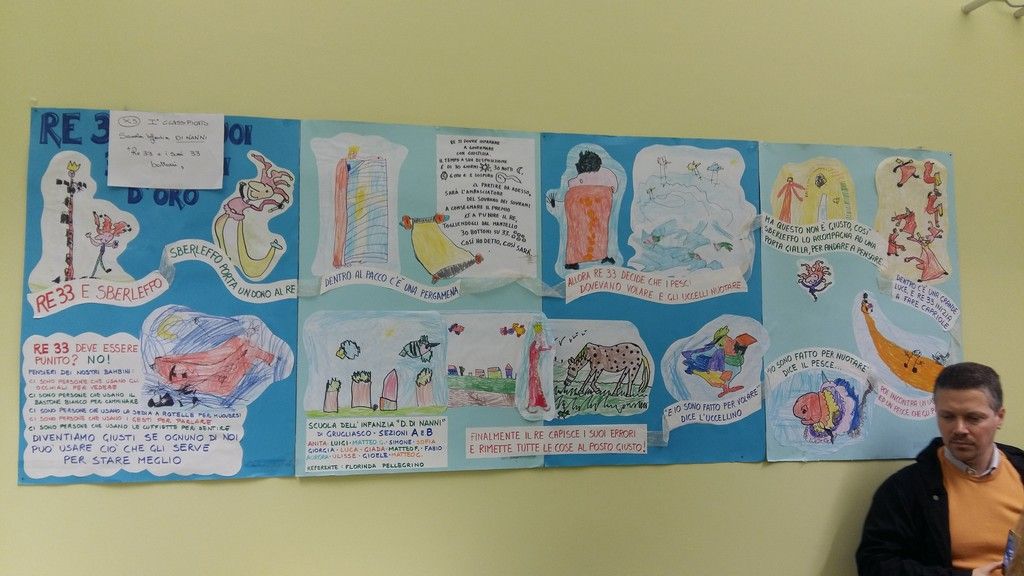 RE 33
D'ORO
I° CLASSIFICATO
Scuola Infanzia DI NANNI
"Re 33 e i suoi 33
bottoni
RE 33 E SBERLEFFO
SBERLEFFO PORTA UN DONO AL RE
DENTRO AL PACCO C'È UNA PERGAMENA
RE TI DEVI IMPARARE
A GOVERNARE
CON GIUSTIZIA
IL TEMPO A SUA DISPOSIZIONE
È DI 30 GIORNI 30 NOTTI
A PARTIRE DA ADESSO,
SARÀ L'AMBASCIATORE
DEL SOVRANO DEI SOVRANI
A CONSEGNARE IL PREMIO
O A PUNIRE IL RE,
TOGLIENDOGLI DAL MANTELLO
30 BOTTONI SU 33.
COSÌ HO DETTO, COSÌ SARÀ
ALLORA RE 33 DECIDE CHE I PESCI
DOVEVANO VOLARE E GLI UCCELLI NUOTARE
MA QUESTO NON È GIUSTO, COSÌ
SBERLEFFO LO ACCOMPAGNA AD UNA
PORTA GIALLA, PER ANDARE A PENSARE
DENTRO C'È UNA GRANDE
LUCE E RE 33 INIZIA
A FARE CAPRIOLE
RE 33 DEVE ESSERE
PUNITO? NO!
PENSIERI DEI NOSTRI BAMBINI:
CI SONO PERSONE CHE USANO GLI
OCCHIALI PER VEDERE
CI SONO PERSONE CHE USANO IL
BASTONE BIANCO PER CAMMINARE
CI SONO PERSONE CHE USANO LA SEDIA A ROTELLE PER MUOVERSI
CI SONO PERSONE CHE USANO I GESTI PER PARLARE
CI SONO PERSONE CHE USANO LE CUFFIETTE PER SENTIRE
DIVENTIAMO GIUSTI SE OGNUNO DI NOI
PUÒ USARE CIÒ CHE GLI SERVE
PER STARE MEGLIO
SCUOLA DELL'INFANZIA "D. DI NANNI"
DI GRUGLIASCO - SEZIONI A e B
ANITA LUIGI - MATTEO G. - SIMONE - SOFIA
GIORGIA - LUCA - GIADA - MATTEO F. - FABIO
AURORA - ULISSE - GIOELE - MATTEO C.
REFERENTE: FLORINDA PELLEGRINO
FINALMENTE IL RE CAPISCE I SUOI ERRORI
E RIMETTE TUTTE LE COSE AL POSTO GIUSTO!
E IO SONO FATTO PER VOLARE
DICE L'UCCELLINO
IO SONO FATTO PER NUOTARE
DICE IL PESCE...
RE INCONTRA UN
ED UN PESCE CHE GLI